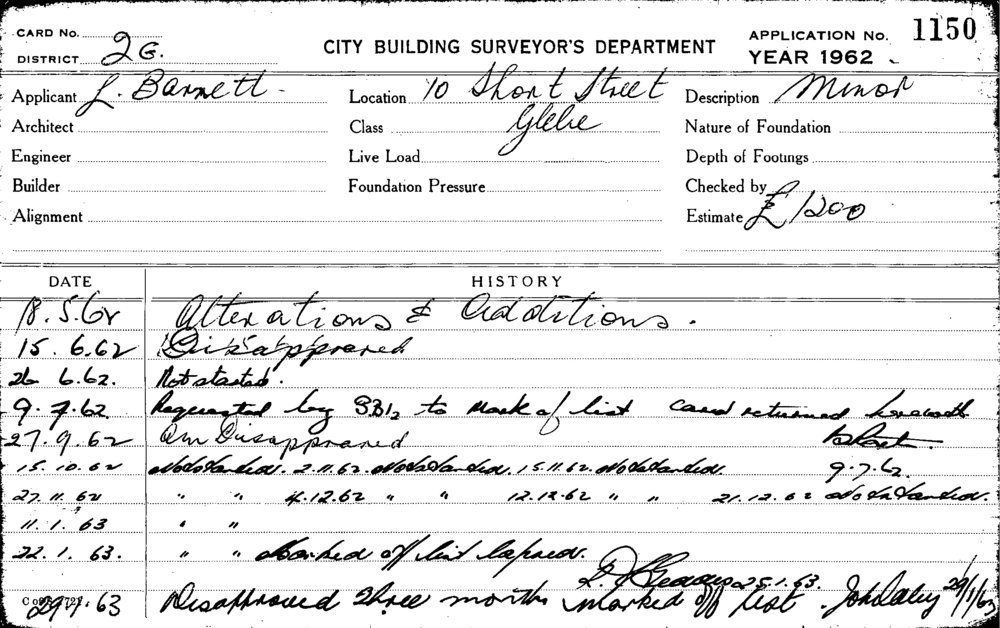 CARD No.
DISTRICT 2G.
CITY BUILDING SURVEYOR'S DEPARTMENT
APPLICATION No. 1150
YEAR 1962
Applicant L. Barnett
Location 10 Short Street
Glebe
Description Minor
Architect
Class
Nature of Foundation
Engineer
Live Load
Depth of Footings
Builder
Foundation Pressure
Checked by
Alignment
Estimate £1200
DATE HISTORY
18.5.62 Alterations & Additions.
15.6.62 Disapproved
26 6.62. Not started.
9.7.62 Requested by to mark of list card returned herewith
27.9.62 Disapproved
15.10.62 Not Started. 2.11.62. Not Started. 15.11.62. Not Started. 9.7.62.
27.11.62 " " 4.12.62 " " 12.12.62 " " 21.12.62 Not Started.
11.1.63 " "
22.1.63. " " Marked off list lapsed.
25.1.63.
29.1.63 Disapproved three months marked off list. John Daley 29/1/63